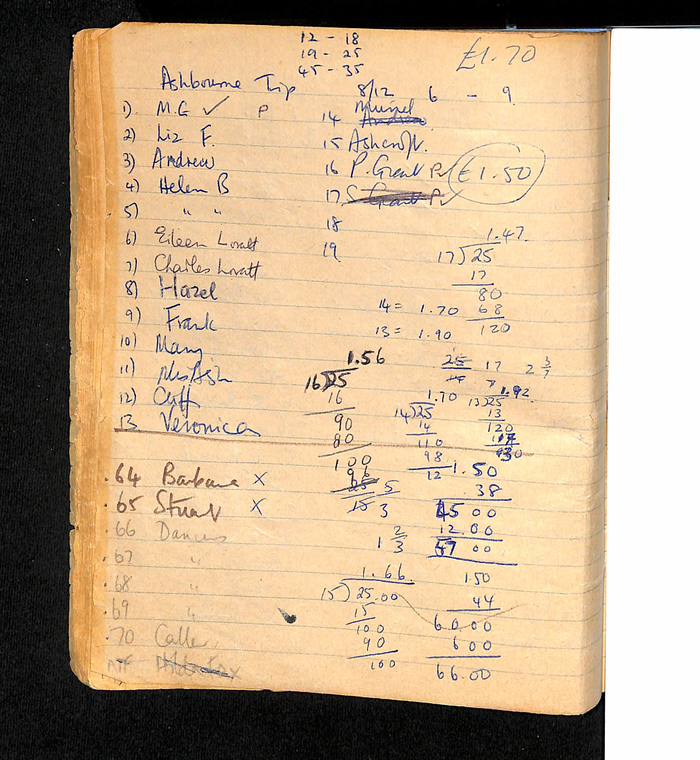 12 - 18
19 - 25
45 - 35
£1.70
Ashbourne Trip 8/12 6 - 9
1) M.G ✓ P
14 Muriel
2) Liz F.
15 Ashcroft.
3) Andrew
16 P. Grant £1.50
4) Helen B
17 S Grant
5) " "
18
6) Eileen Lovatt
19
7) Charles Lovatt
8) Hazel
9) Frank
10) Mary
11) Mrs Ash
12) Cliff
13 Veronica
1.47.
17)25
17
80
68
120
14 = 1.70
13 = 1.90
1.56
16)25
16
90
80
100
96
25 17 2 3/7
1.70
14)25
14
110
98
12
1.92
13)25
13
120
1.50
38
45 00
12.00
57 00
5
15 3
1 2/3
.64 Barbara X
.65 Stuart X
.66 Dancers
.67 "
.68 "
.69 "
.70 Caller
1.66.
15)25.00
15
100
90
100
150
44
60.00
6 00
66.00